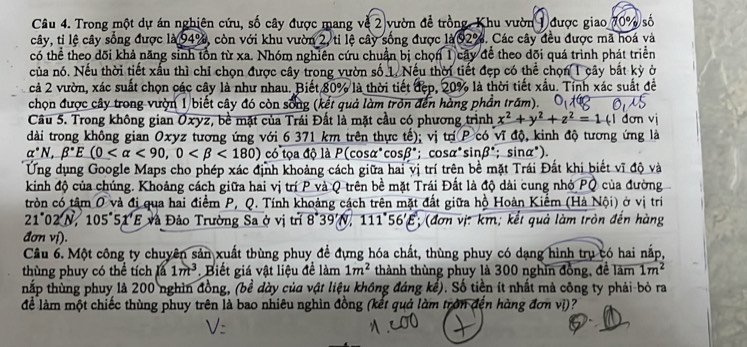 Câu 4. Trong một dự án nghiên cứu, số cây được mang về 2 vườn để trồng. Khu vườn 1 được giao 70% số
cây, tỉ lệ cây sống được là 94%, còn với khu vườn 2, tỉ lệ cây sống được là 92%. Các cây đều được mã hoá và
có thể theo dõi khả năng sinh tồn từ xa. Nhóm nghiên cứu chuẩn bị chọn 1 cây để theo dõi quá trình phát triển
của nó. Nếu thời tiết xấu thì chỉ chọn được cây trong vườn số 1. Nếu thời tiết đẹp có thể chọn 1 cây bất kỳ ở
cả 2 vườn, xác suất chọn các cây là như nhau. Biết 80% là thời tiết đẹp, 20% là thời tiết xấu. Tính xác suất để
chọn được cây trong vườn 1 biết cây đó còn sống (kết quả làm tròn đến hàng phần trăm). 0,15
Câu 5. Trong không gian Oxyz, bề mặt của Trái Đất là mặt cầu có phương trình x² + y² + z² = 1 (1 đơn vị
dài trong không gian Oxyz tương ứng với 6 371 km trên thực tế); vị trí P có vĩ độ, kinh độ tương ứng là
α°N, β°E (0 < α < 90, 0 < β < 180) có tọa độ là P(cosα°cosβ°; cosα°sinβ°; sinα°).
Ứng dụng Google Maps cho phép xác định khoảng cách giữa hai vị trí trên bề mặt Trái Đất khi biết vĩ độ và
kinh độ của chúng. Khoảng cách giữa hai vị trí P và Q trên bề mặt Trái Đất là độ dài cung nhỏ PQ của đường
tròn có tâm O và đi qua hai điểm P, Q. Tính khoảng cách trên mặt đất giữa hồ Hoàn Kiếm (Hà Nội) ở vị trí
21°02'N, 105°51'E và Đảo Trường Sa ở vị trí 8°39'N, 111°56'E; (đơn vị: km; kết quả làm tròn đến hàng
đơn vị).
Câu 6. Một công ty chuyên sản xuất thùng phuy để đựng hóa chất, thùng phuy có dạng hình trụ có hai nắp,
thùng phuy có thể tích là 1m³. Biết giá vật liệu để làm 1m² thành thùng phuy là 300 nghìn đồng, để làm 1m²
nắp thùng phuy là 200 nghìn đồng, (bề dày của vật liệu không đáng kể). Số tiền ít nhất mà công ty phải bỏ ra
để làm một chiếc thùng phuy trên là bao nhiêu nghìn đồng (kết quả làm tròn đến hàng đơn vị)?
V=